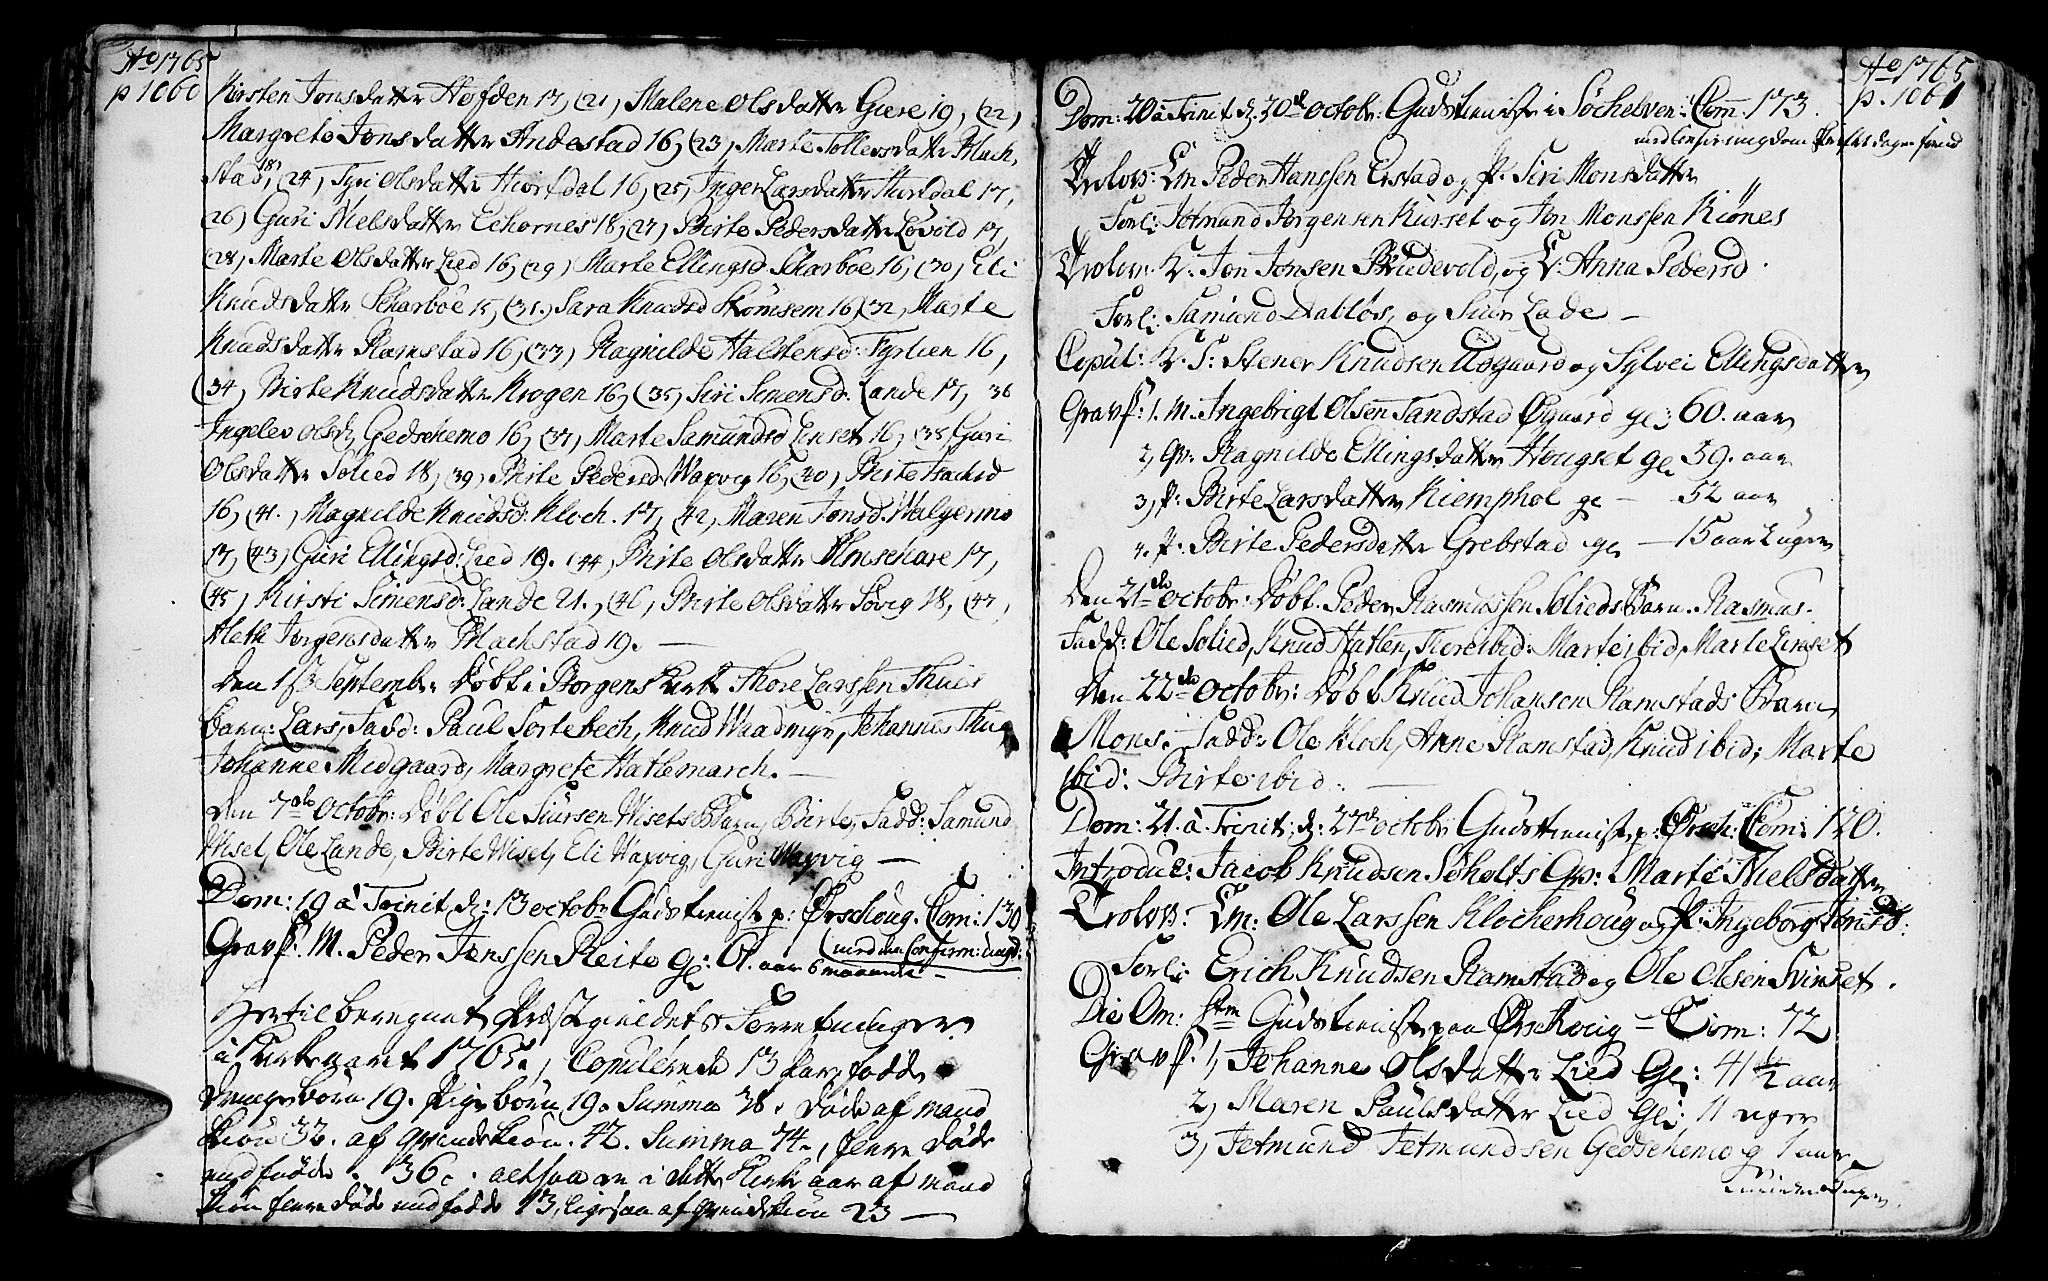 Ao 1765
p 1060
Kirsten Jonsdatter Hofden 17, (21, Malene Olsdatter Giere 19, (22,
Margrete Jonsdatter Andestad 16, (23, Marte Tollevsdatter Blach,
stad 18, (24, Syri Olsdatter Hiortdal 16, (25, Inger Larsdatter Hiortdal 17,
(26) Guri Nielsdatter Echornes 18, (27, Birte Pedersdatter Lövold 17,
(28, Marte Olsdatter Lied 16, (29) Marte Ellingsd Scharboe 16, (30, Eli
Knudsdatter Scharboe 15, (31. Sara Knudsd Skomsem 16, (32, Marte
Knudsdatter Ramstad 16, (33, Ragnilde Halstensd: Fyrlien 16,
(34, Birte Knudsdatter Krogen 16, (35, Siri Simensd: Lande 17, 36
Ingelev Olsd: Gedschemo 16, (37, Marte Samundsd Linset 16, (38 Guri
Olsdatter Solied 18, (39, Birte Pedersd Waxvig 16, (40, Birte Isachsd
16, (41., Ragnilde Knudsd: Kloch. 17, (42, Maren Jonsd: Walgermo
17, (43, Guri Ellingsd: Lied 19. (44, Birte Olsdatter Amschare 17,
(45, Kirsti Simensd: Lande 21., (46, Birte Olsdatter Sövig 18, (47,
Aleth Jorgensdatter Blachstad 19. —
Den 13 Septemb: Döbt i Borgens Kirke Thore Larssen Thues
Barn: Lars, Fadd: Paul Sortebech, Knud Waadmyr, Johannes Thue
Johanne Midgaard, Margrete Hatlemarch. —
Den 7de Octobr: Döbt Ole Siursen Wisets Barn, Birte, Fadd: Samund
Wiset, Ole Lande, Birte Wiset, Eli Waxvig, Guri Waxvig —
Dom: 19 à Trinit, d: 13 octobr Gudstienist p: Örschoug. Com: 130
Gravf. M. Peder Jenssen Reite gl: 01. aar 6 maaneder — (med den Confirm: ungd:
Hertil beregnet Præstegieldets Forretninger
i Kirkeaaret 1765., Copulerede 13 par, fødde
drengebörn 19. Pigebörn 19. Summa 38. döde af mand
kiön 32. af qvindekiön. 42. Summa 74., flere döde
end fødde. 36. altsaa er i dette Kirke aar af mand
kiön flere döde end fødde 13, ligesaa af qvindekiön 23 —
Ao 1765
p. 1061
Dom: 20 à Trinit d: 20de Octobr: Gudstienist i Söchelven: Com. 173.
med Confir: ungdom
Trolov: Em Peder Hanssen Erstad og P. Siri Monsdatter
Forl: Jetmund Jorgensen Kurset og Jon Monssen Kiönes
Trolov: K. Jon Jonsen Brudevold, og E: Anna Pedersd.
Forl: Samund Aabløs, og Siur Lade —
Copul: K. S: Stener Knudsen Uögaard og Sylvei Ellingsdatter
Gravf: 1. M. Ingebrigt Olsen Tandstad Øgaard gl: 60. aar
2, Qv: Ragnilde Ellingsdatter Hougset gl 59. aar
3, P: Birte Larsdatter Kiemphol gl — 52 aar
4. P: Birte Pedersdatter Grebstad gl — 15 aar 2 uger
Den 21de Octobr: Döbt. Peder Rasmussen Solieds Barn. Rasmus.
Fadd: Ole Solied, Knud Hatlen, Tore ibid: Marte ibid, Marte Linset
Den 22de Octobr: Döbt Knud Johansen Ramstads Barn
Mons. Fadd: Ole Kloch, Anne Ramstad, Knud ibid; Marte
ibid: Birte ibid. —
Dom: 21. à Trinit: d: 27de Octobr Gudstienist p: Örsch: Com: 120.
Introduc: Jacob Knudsen Søholts Qv: Marte Nielsdatter
Trolov: Em: Ole Larssen Klocherhoug og P. Ingeborg Jonsd:
Forl: Erich Knudsen Ramstad og Ole Olsen Tvinset.
Die Om: Stm Gudstienist paa Örschoug — Com: 72
Gravf. 1, Johanne Olsdatter Lied Gl: 41 1/2 aar
2, Maren Paulsdatter Lied Gl: 11 uger
3, Jetmund Jetmundsen Gedschemo g 1 aar